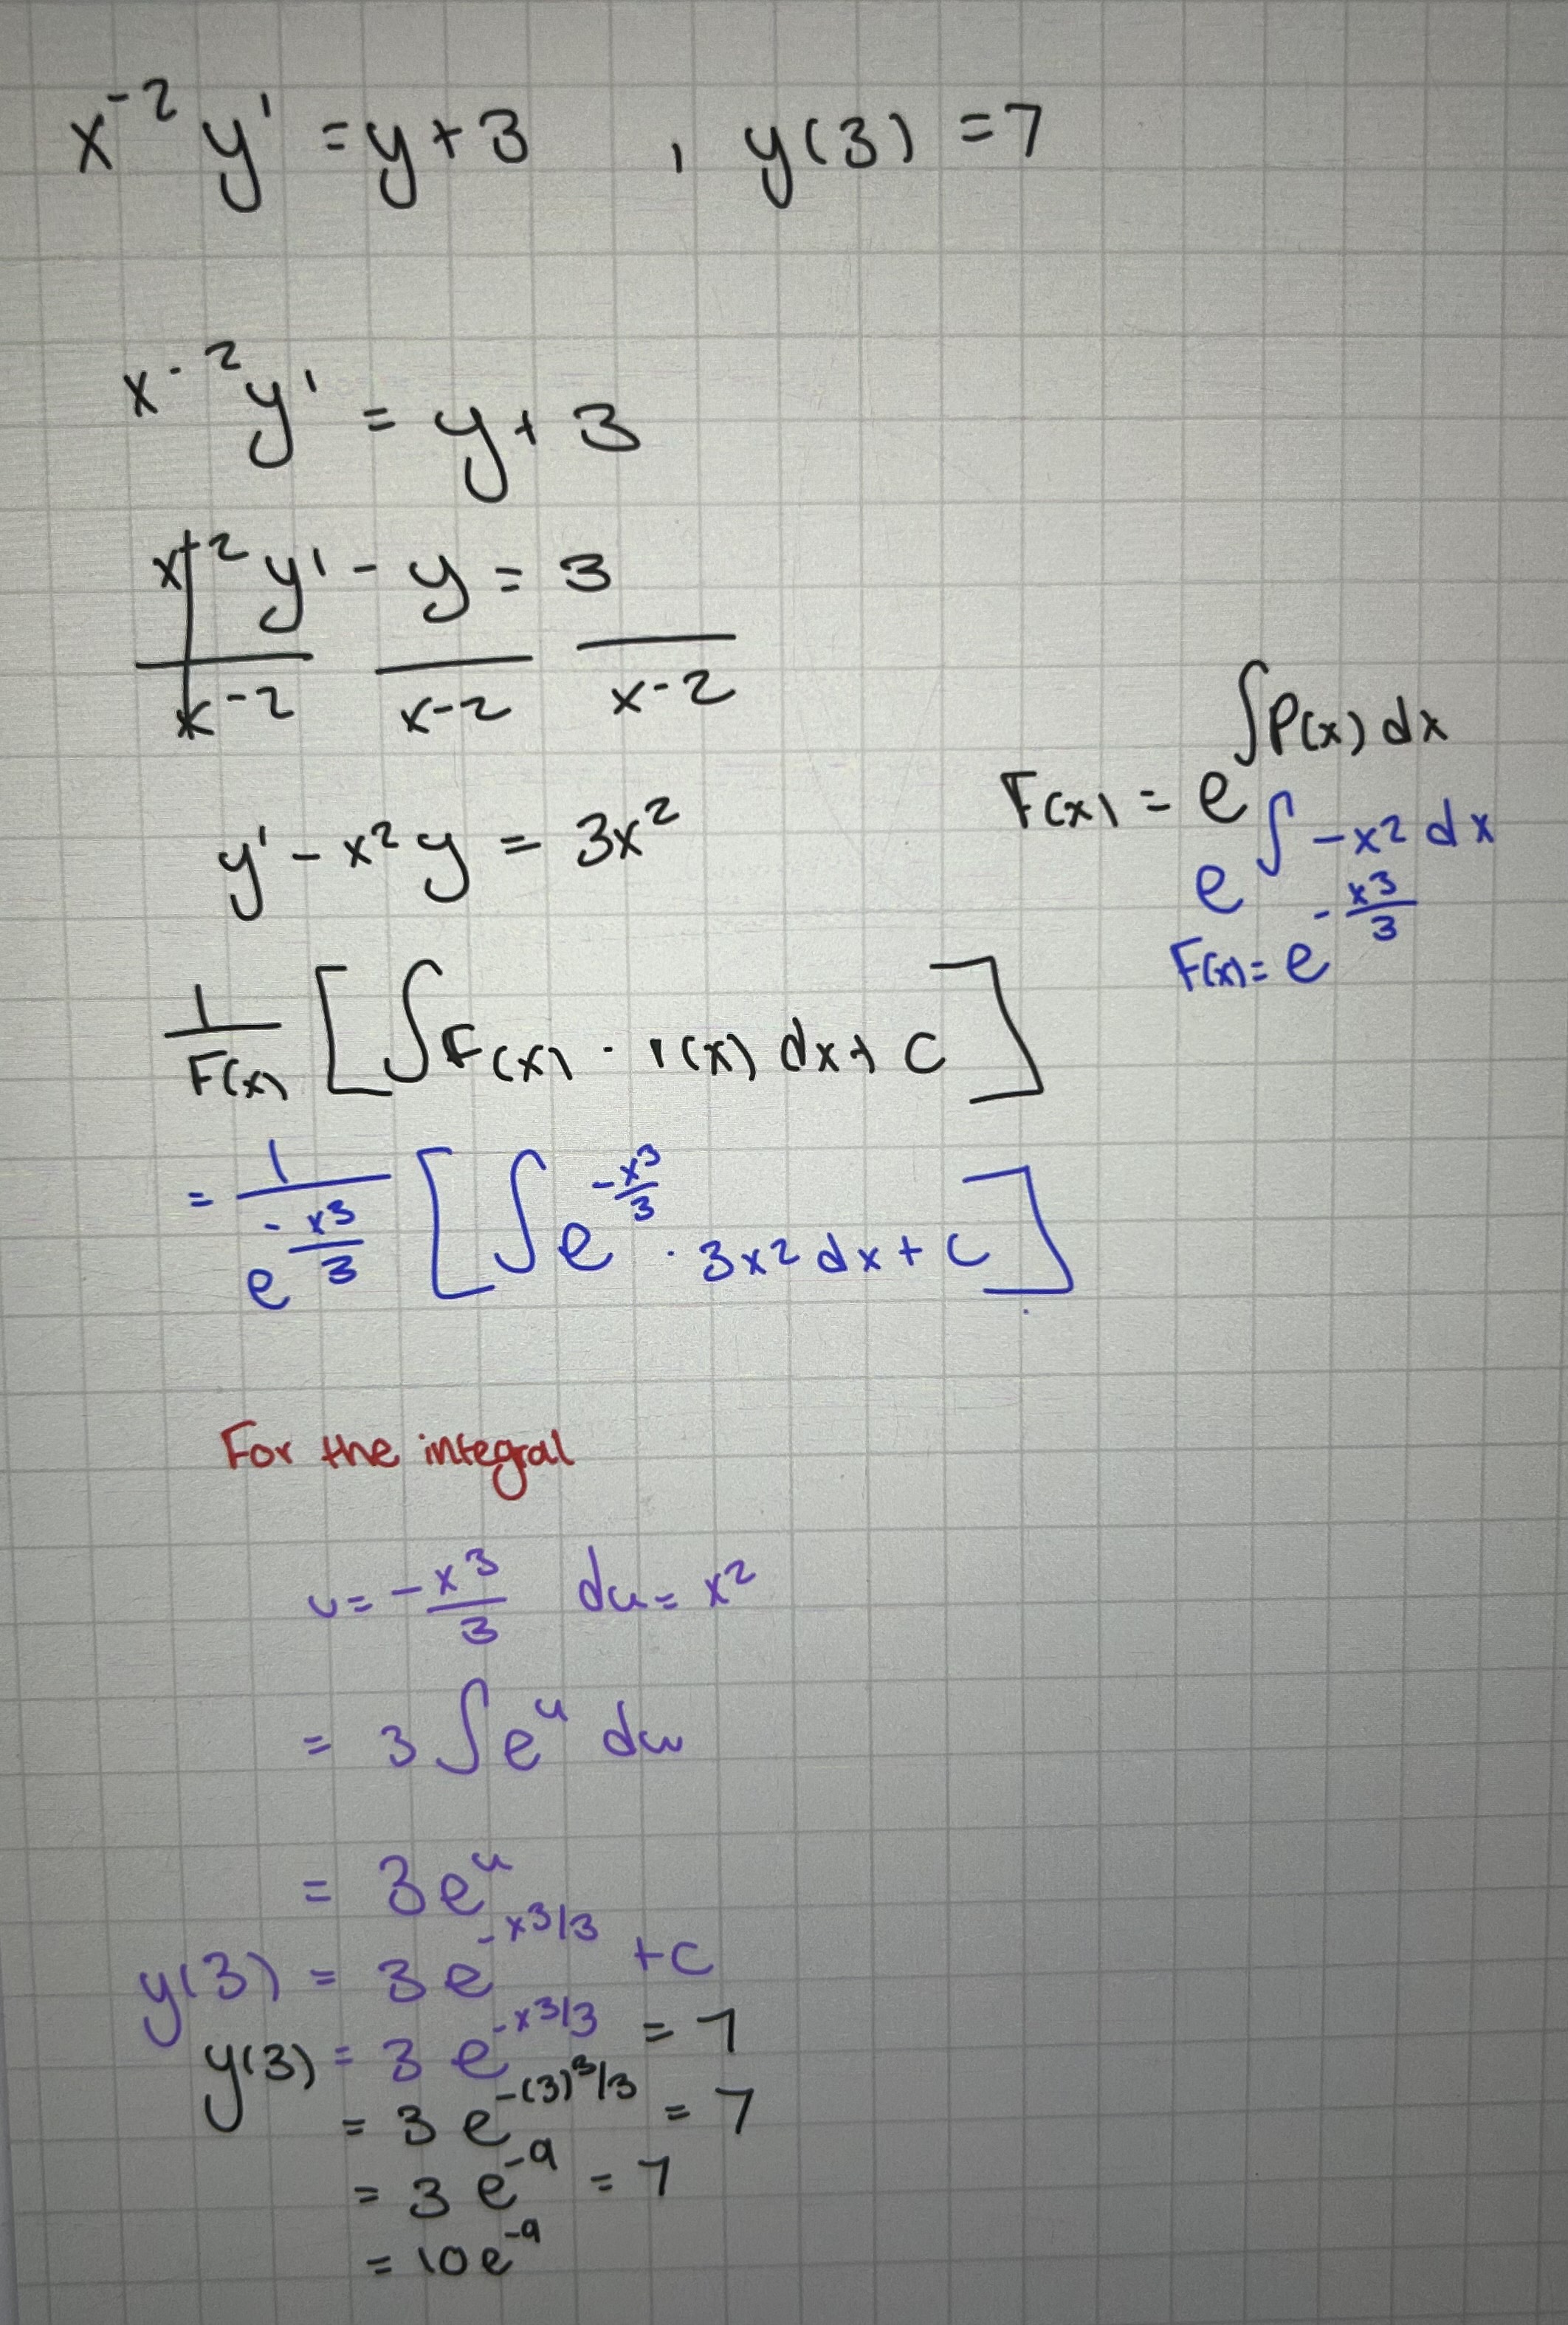 x⁻² y' = y + 3 , y(3) = 7
x⁻² y' = y + 3
x⁻² y' - y = 3
x⁻² x⁻² x⁻²
y' - x² y = 3x²
F(x) = e^∫P(x) dx
e^∫-x² dx
F(x) = e^-x³/3
1/F(x) [∫F(x) · r(x) dx + C]
= 1/e^-x³/3 [∫e^-x³/3 · 3x² dx + C]
For the integral
u = -x³/3 du = x²
= 3∫e^u du
= 3e^u
y(3) = 3e^-x³/3 + C
y(3) = 3e^-x³/3 = 7
= 3e^-(3)³/3 = 7
= 3e^-9 = 7
= 10e^-9